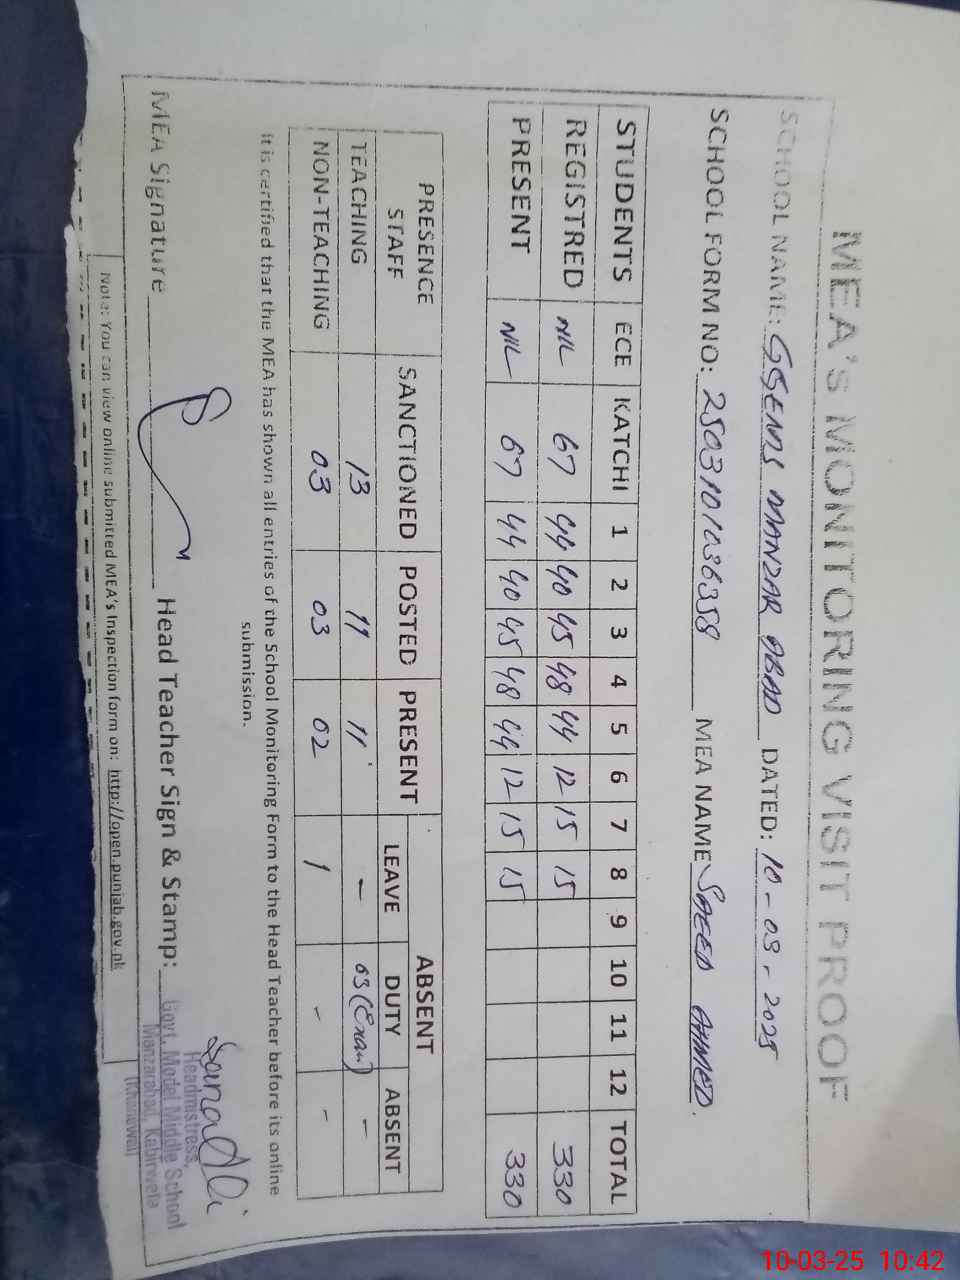 MEA'S MONITORING VISIT PROOF
SCHOOL NAME: GGEMS MANZAR ABAD DATED: 10-03-2025
SCHOOL FORM NO: 2503101036358 MEA NAME SAEED AHMED.
STUDENTS ECE KATCHI 1 2 3 4 5 6 7 8 9 10 11 12 TOTAL
REGISTRED NIL 67 44 40 45 48 44 12 15 15 330
PRESENT NIL 67 44 40 45 48 44 12 15 15 330
PRESENCE STAFF SANCTIONED POSTED PRESENT ABSENT
LEAVE DUTY ABSENT
TEACHING 13 11 11 - 03 (Exam) -
NON-TEACHING 03 03 02 1 - -
It is certified that the MEA has shown all entries of the School Monitoring Form to the Head Teacher before its online
submission.
MEA Signature Head Teacher Sign & Stamp:
Headmistress,
Govt. Model Middle School
Manzarabad, Kabirwala
(Khanewal)
Note: You can view online submitted MEA's Inspection form on: http://open.punjab.gov.pk
10-03-25 10:42